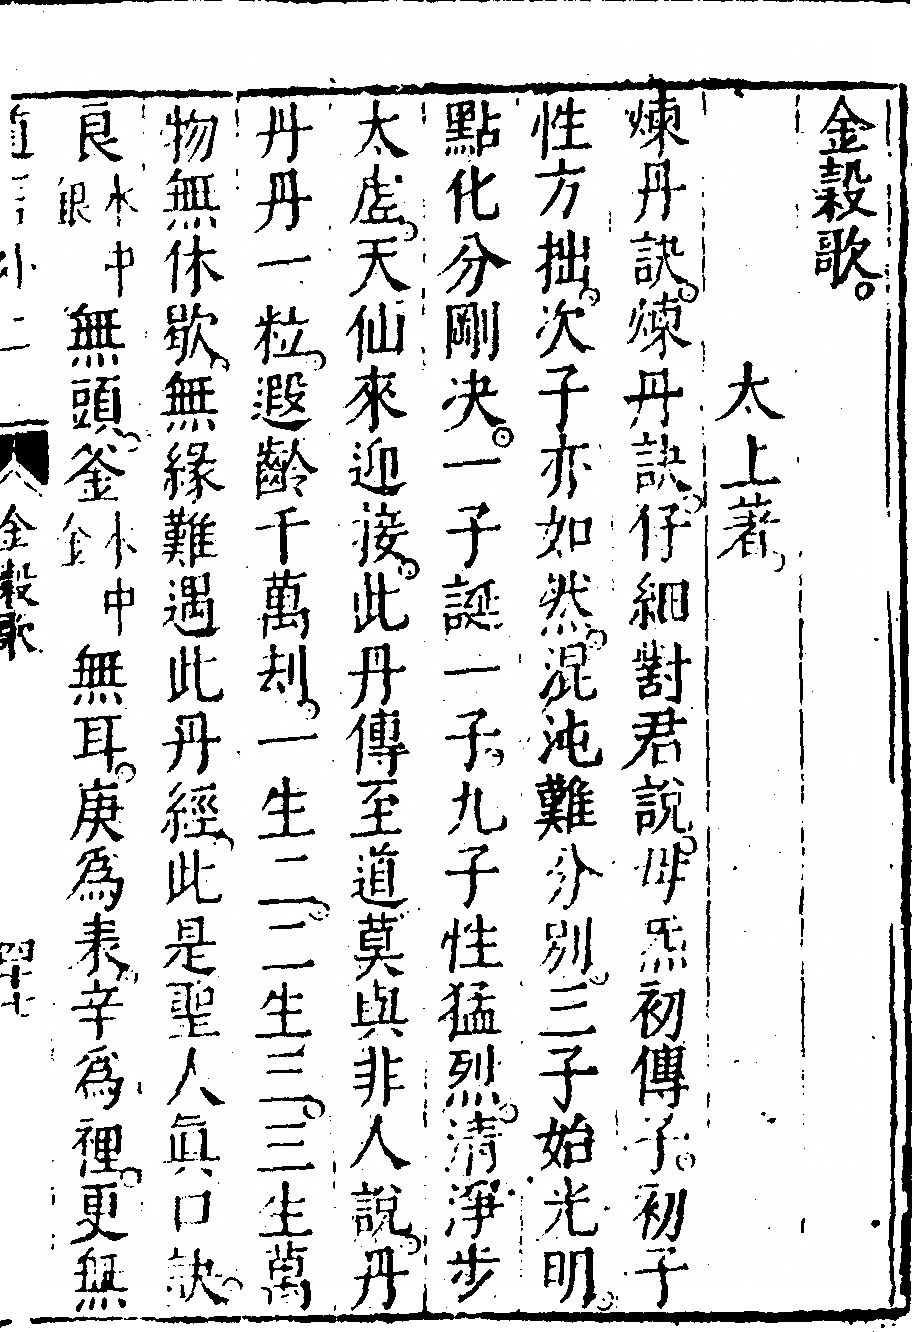 金穀歌。
太上著。
煉丹訣。煉丹訣。仔細對君說。母炁初傳子。初子
性方拙。次子亦如然。混沌難分別。三子始光明。
點化分剛决。一子誕一子。九子性猛烈。清淨步
太虛。天仙來迎接。此丹傳至道莫與非人說。丹
丹丹一粒。遐齡千萬刼。一生二。二生三。三生萬
物無休歇。無緣難遇此丹經。此是聖人眞口訣。
良水中銀無頭。釜水中金無耳。庚爲表。辛爲裡。更無
金穀歌